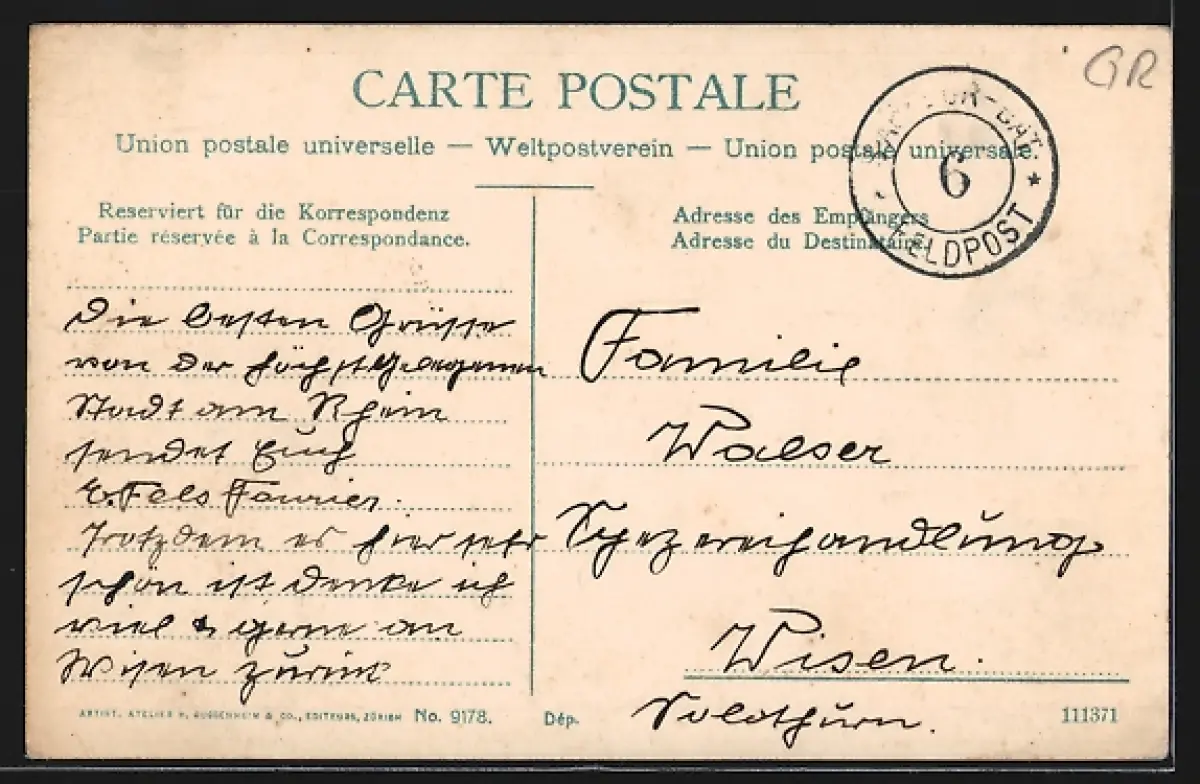 GR
CARTE POSTALE
Union postale universelle — Weltpostverein — Union postale universale.
6
FELDPOST
Reserviert für die Korrespondenz
Partie réservée à la Correspondance.
Adresse des Empfängers
Adresse du Destinataire.
Die besten Grüsse
von der höchst gelegenen
Stadt am Rhein
sendet Euch
E. Fels Fourier.
Trotzdem es hier sehr
schön ist denke ich
viel & gerne an
Wisen zurück
Familie
Walser
Spezereihandlung
Wisen.
Solothurn.
ARTIST. ATELIER H. GUGGENHEIM & CO., EDITEURS, ZÜRICH No. 9178.
Dép.
111371